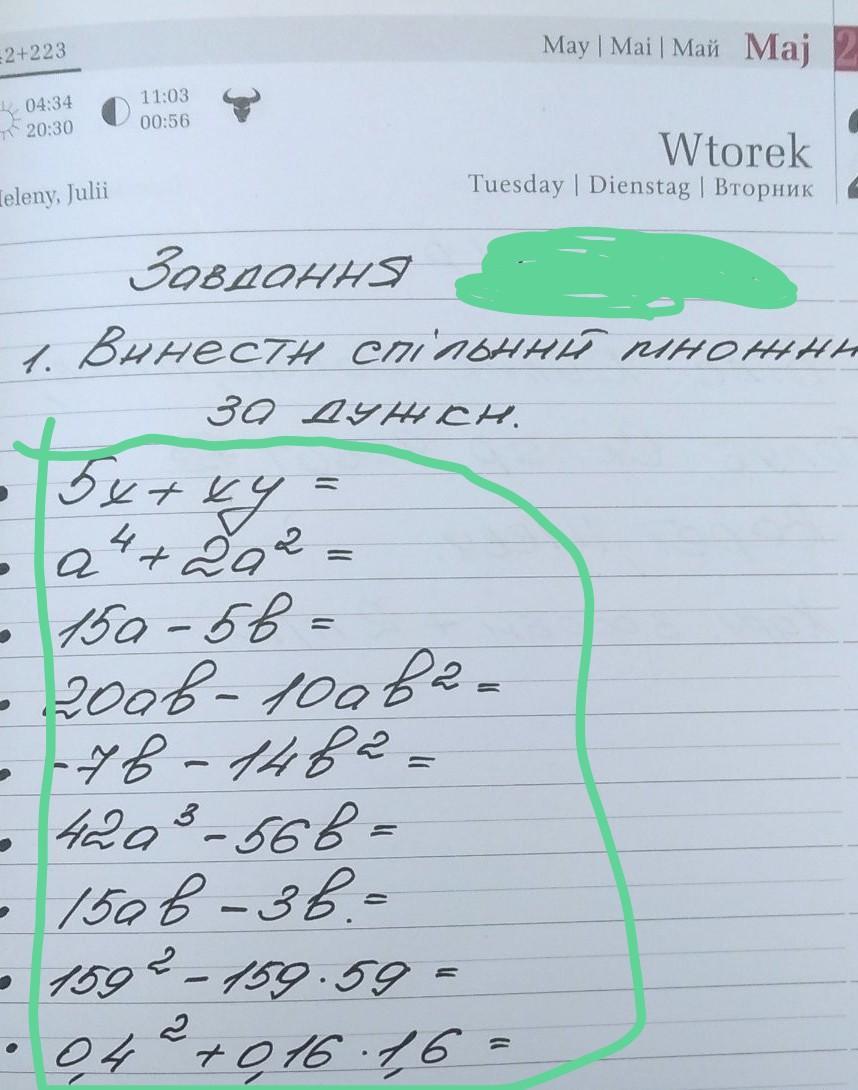 42+223
May | Mai | Май Maj 2
04:34
20:30
11:03
00:56
Wtorek
Tuesday | Dienstag | Вторник
Heleny, Julii
Завдання
1. Винести спільний множни
за дужки.
• 5x + xy =
• a⁴ + 2a² =
• 15a - 5b =
• 20ab - 10ab² =
• -7b - 14b² =
• 42a³ - 56b =
• 15ab - 3b. =
• 159² - 159 · 59 =
• 0,4² + 0,16 · 1,6 =